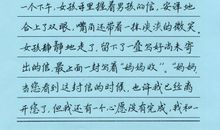 一个下午，女孩手里握着男孩的信，安详地
合上了双眼，嘴角还带着一抹淡淡的微笑。
女孩静静地走了，留下了一叠写好尚未寄
出的信，最上面一封写着“妈妈收”。“妈妈，
当您看到这封信的时候，也许我已经离
开您了，但我还有一个心愿没有完成，我和一